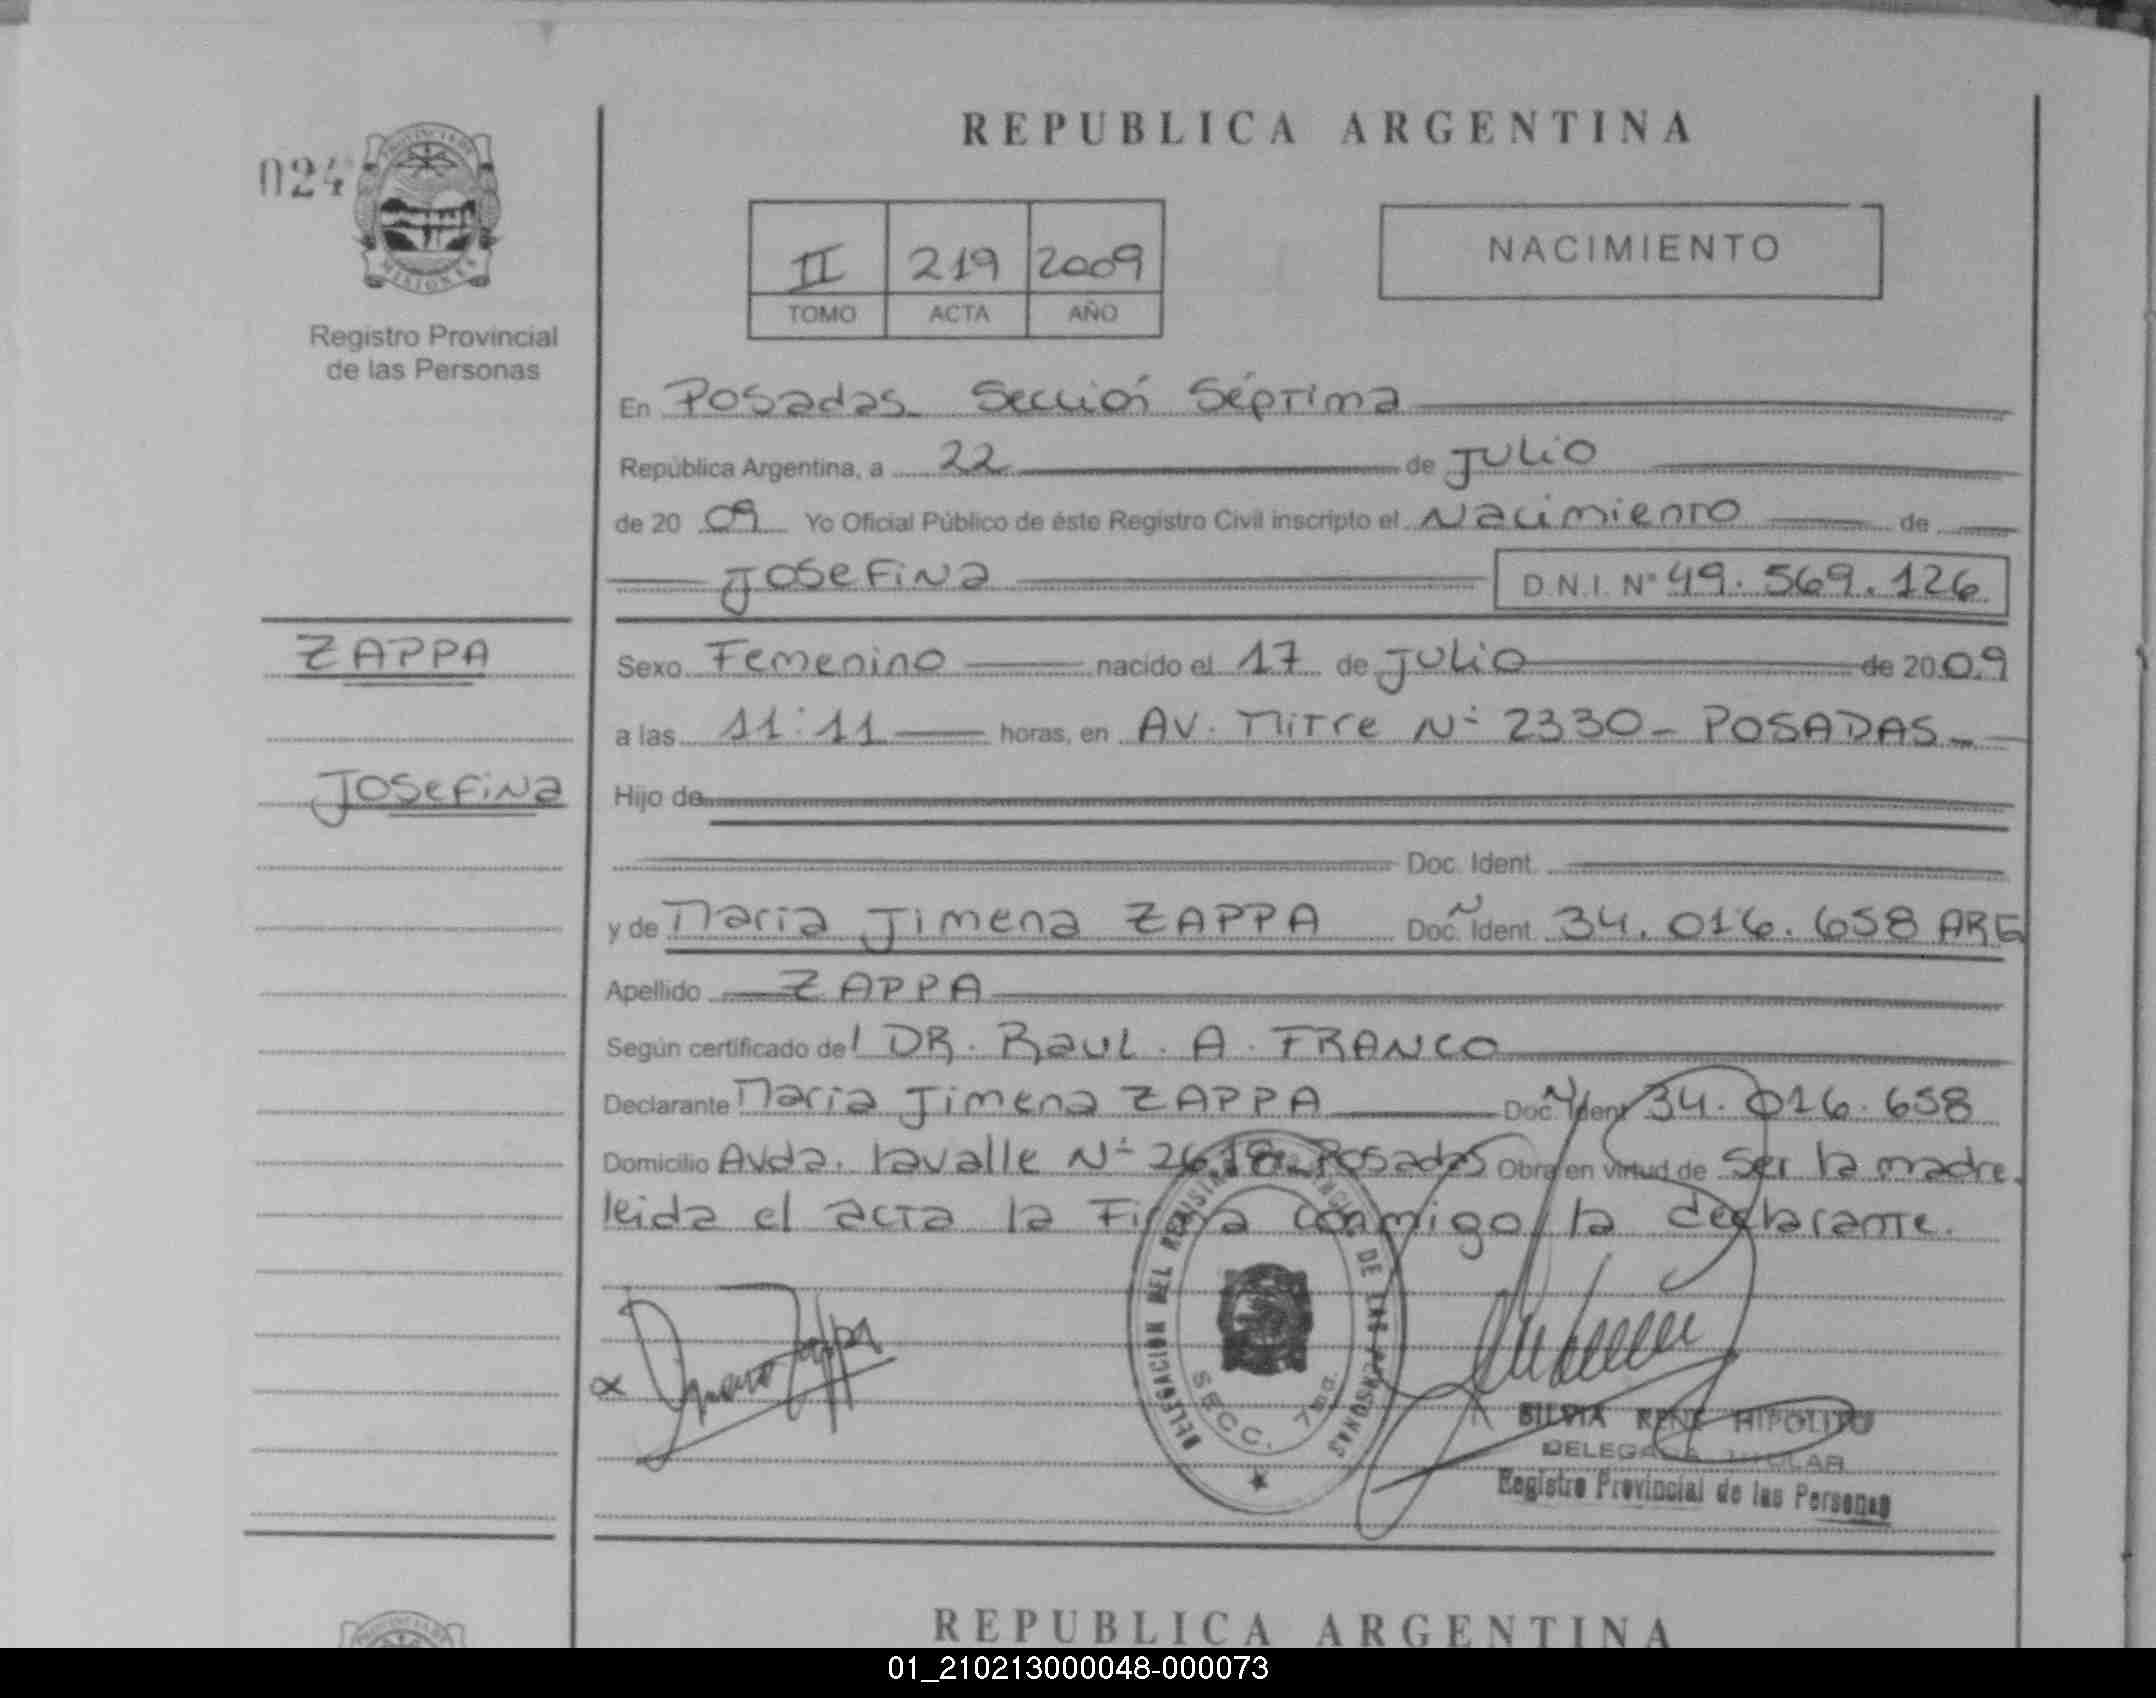 REPUBLICA ARGENTINA
024
PROVINCIA DE
MISIONES
II 219 2009
TOMO ACTA AÑO
NACIMIENTO
Registro Provincial
de las Personas
En Posadas Sección Séptima
República Argentina, a 22 de Julio
de 20 09 Yo Oficial Público de éste Registro Civil inscripto el Nacimiento de
Josefina D.N.I. Nº 49.569.126
ZAPPA
Sexo Femenino nacido el 17 de Julio de 2009
a las 11:11 horas, en AV. Mitre Nº 2330 - POSADAS -
Josefina
Hijo de
Doc. Ident.
y de Maria Jimena ZAPPA Doc. Ident. 34.016.658 ARG
Apellido ZAPPA
Según certificado del DR. Raul. A. FRANCO
Declarante Maria Jimena ZAPPA Doc. Ident 34.016.658
Domicilio Avda. Lavalle Nº 2618 - Posadas Obra en virtud de Ser la madre.
leida el acta la Firma conmigo la declarante.
DELEGACION DEL REGISTRO PROVINCIAL DE LAS PERSONAS
SECC. 7ma.
SILVIA RENE HIPOLITO
DELEGADA TITULAR
Registro Provincial de las Personas
REPUBLICA ARGENTINA
01_210213000048-000073